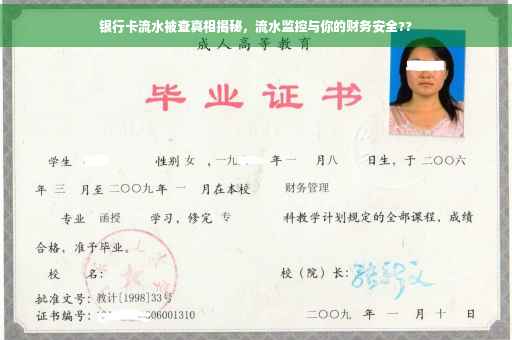 银行卡流水被查真相揭秘，流水监控与你的财务安全??
成人高等教育
毕业证书
学生 性别 女 ，一九 年一 月八 日生，于 二〇〇六
年 三 月至 二〇〇九 年 一 月在本校 财务管理
专业 函授 学习，修完 专 科教学计划规定的全部课程，成绩
合格，准予毕业。
校 名： 校（院）长：
批准文号：教计[1998]33号
证书编号： 06001310 二〇〇九 年 一 月 十 日